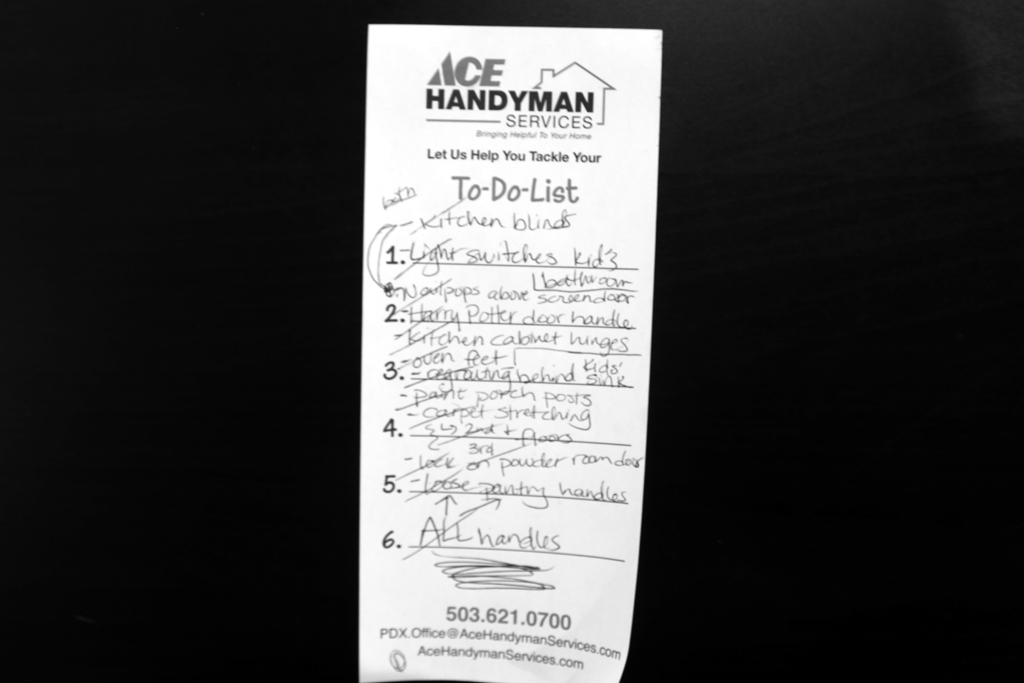 ACE
HANDYMAN
SERVICES
Bringing Helpful To Your Home
Let Us Help You Tackle Your
To-Do-List
both
- Kitchen blinds
1. - Light switches kid's
bathroom
- Nail pops above screen door
2. - Harry Potter door handle
- Kitchen cabinet hinges
3. - oven feet
- regrouting behind kids' sink
- paint porch posts
- carpet stretching
4. ↳ 2nd + 3rd floors
- lock on powder room door
5. - loose pantry handles
6. ALL handles
503.621.0700
PDX.Office@AceHandymanServices.com
AceHandymanServices.com